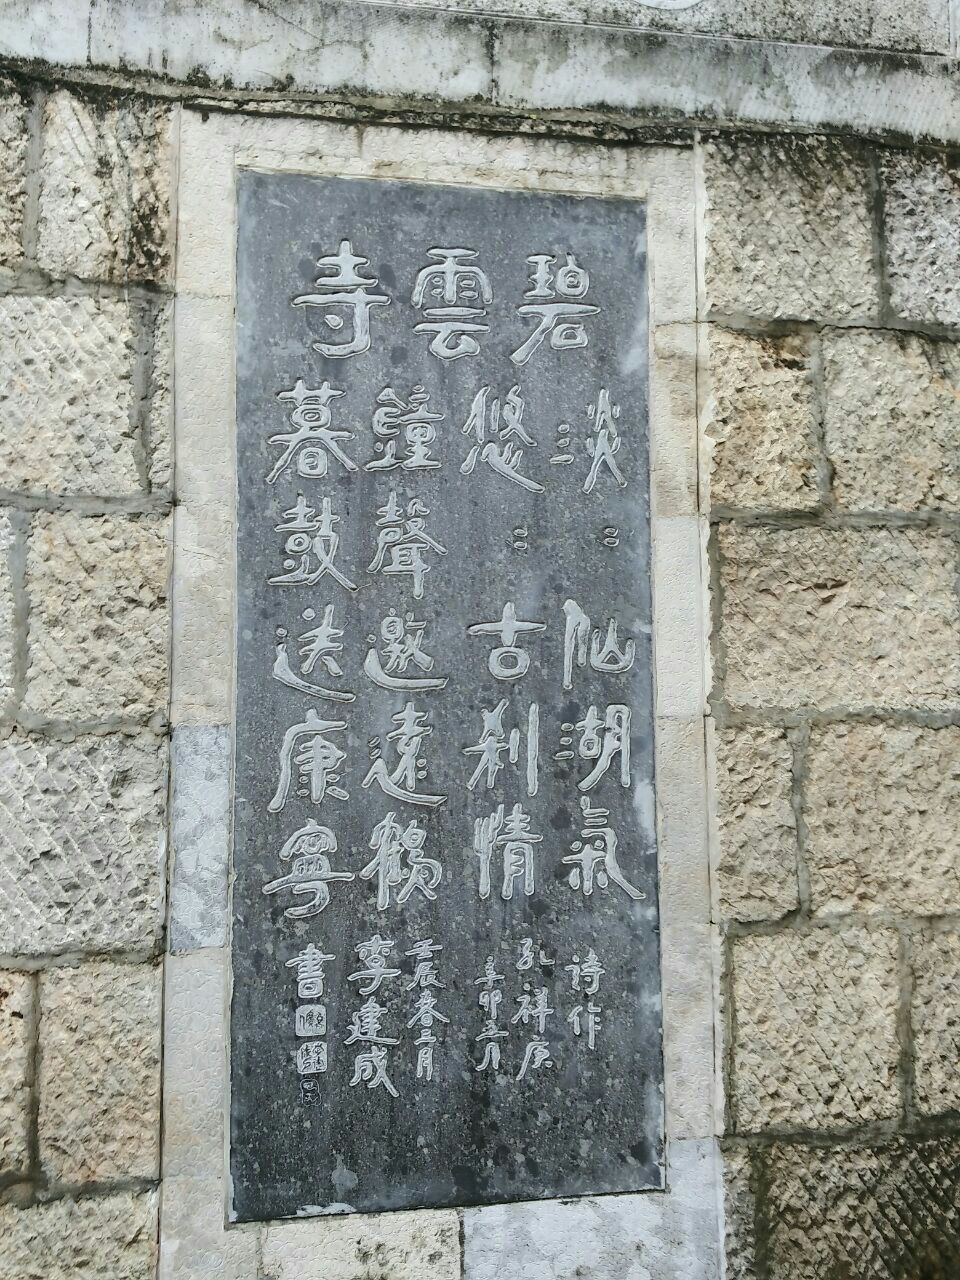 碧雲寺
淡〻仙湖氣
悠〻古刹情
鐘聲邀遠鶴
暮鼓送康寧
詩作
孔祥庚
辛卯五月
壬辰春二月
李建成
書